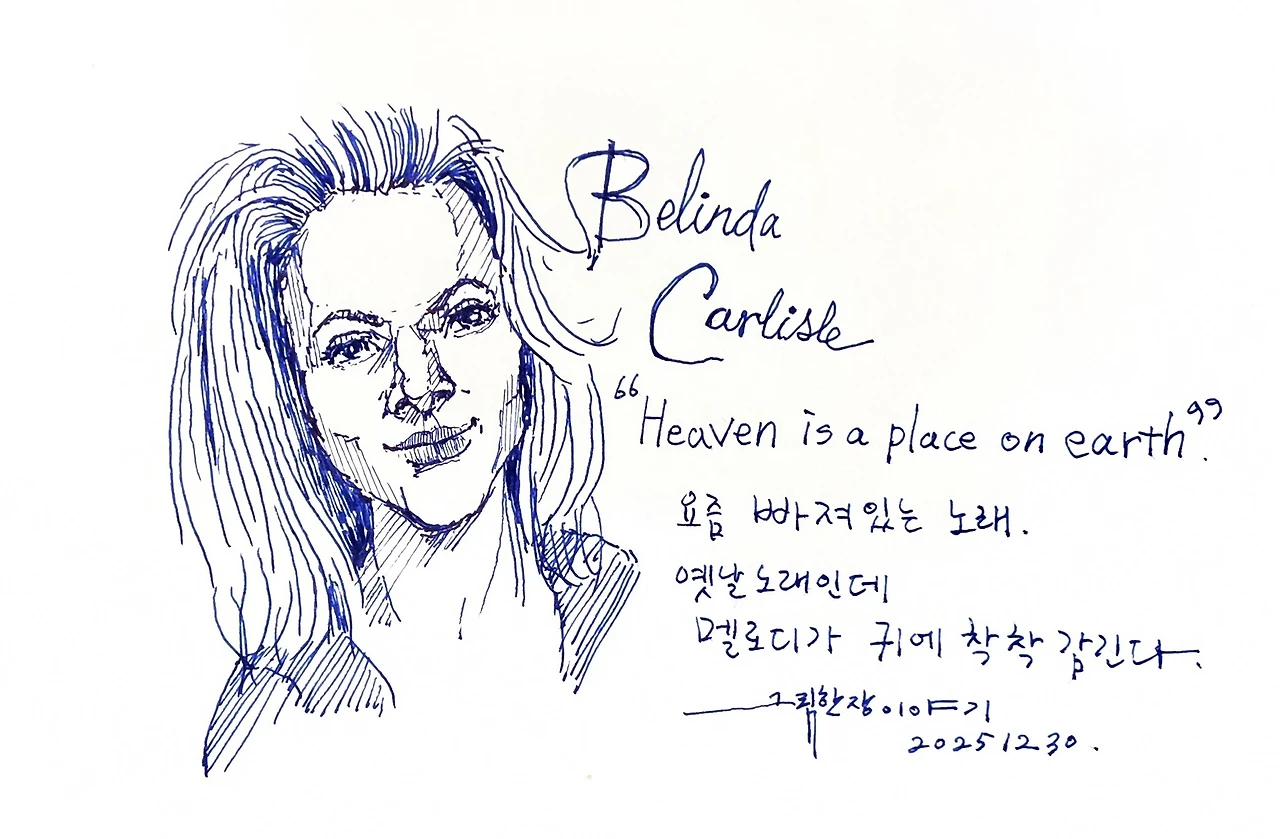 Belinda
Carlisle
"Heaven is a place on earth".
요즘 빠져있는 노래.
옛날노래인데
멜로디가 귀에 착착 감긴다.
그림한장이야기
20251230.